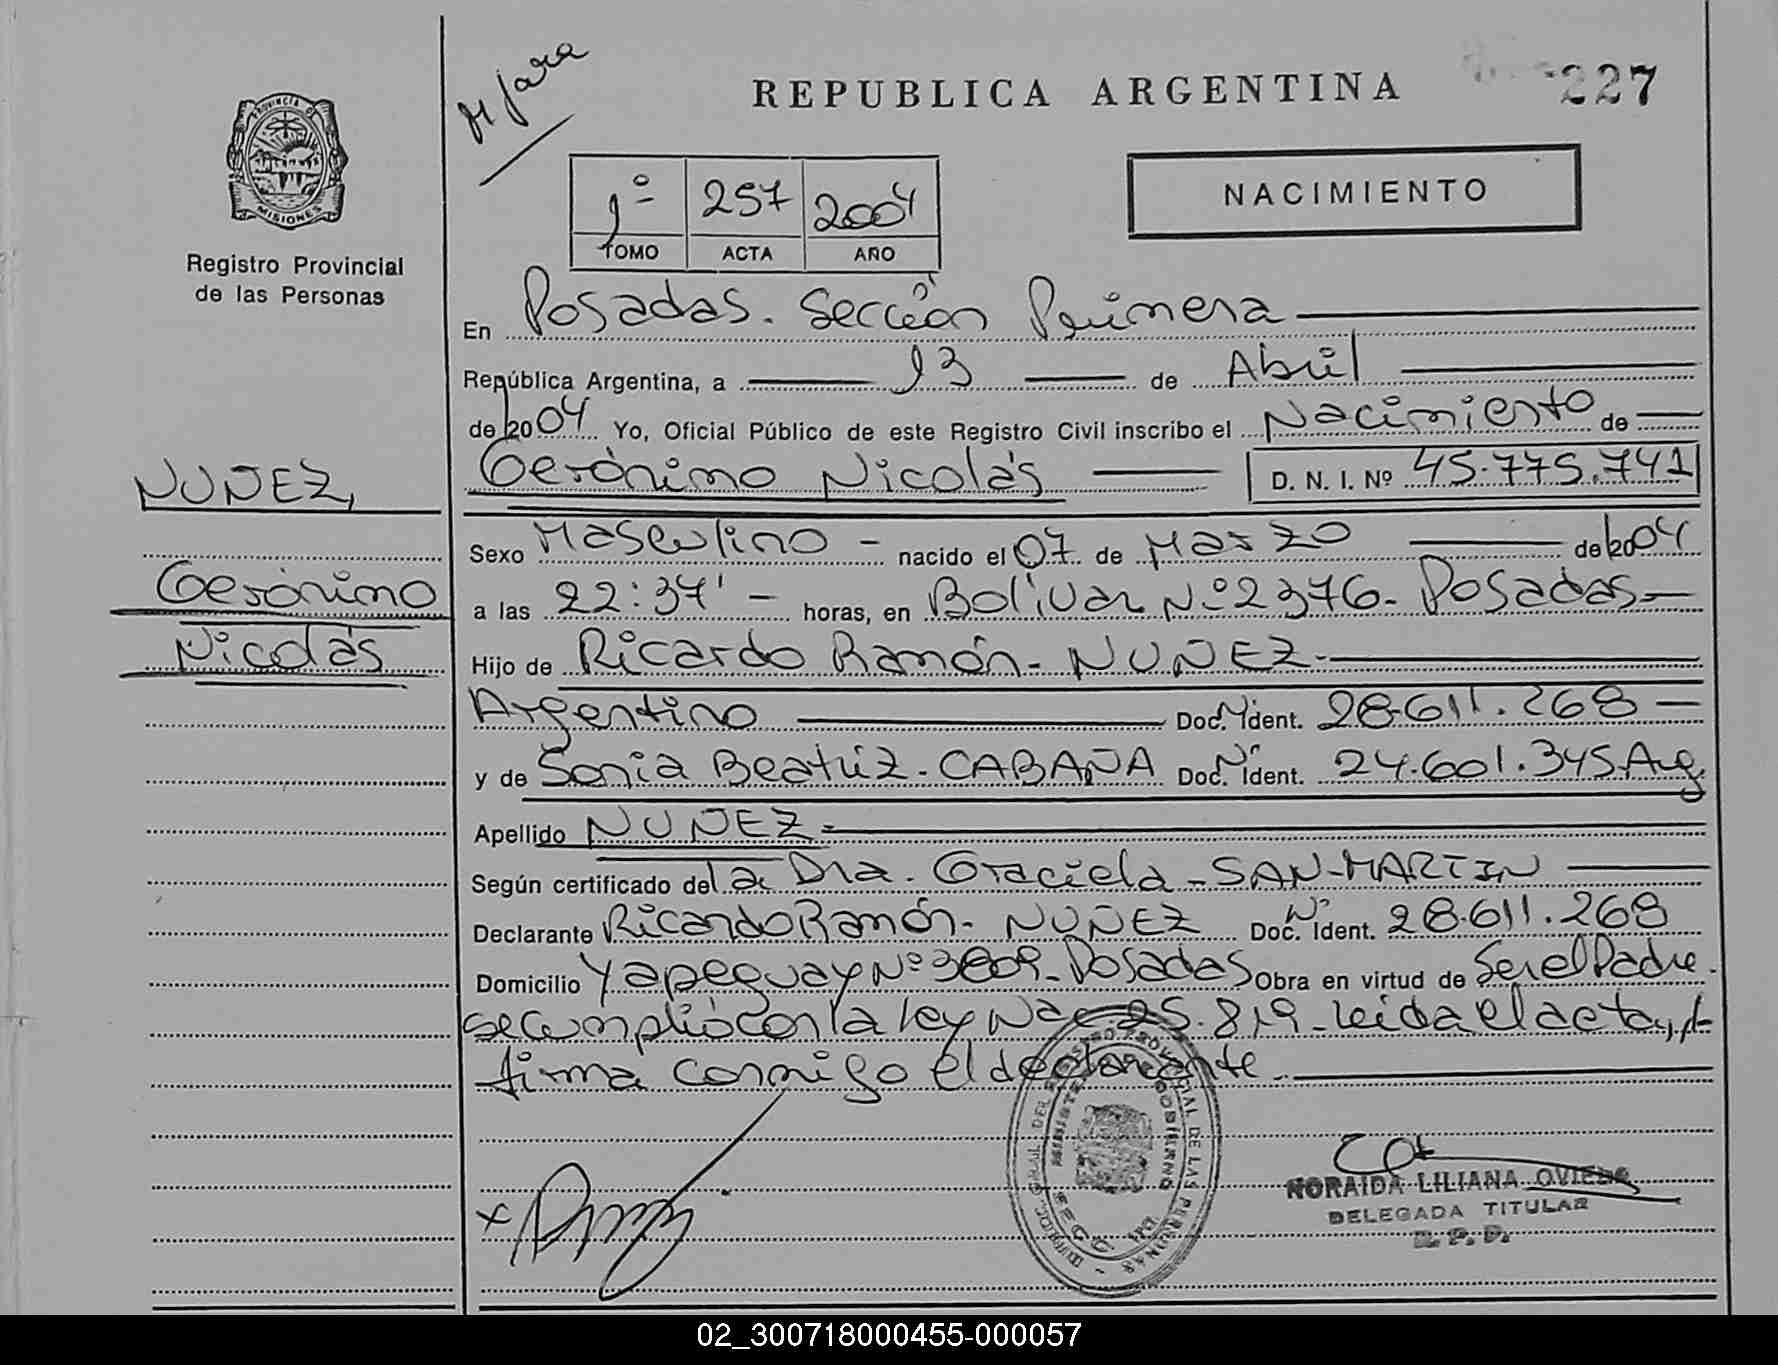 M Jara
REPUBLICA ARGENTINA
227
PROVINCIA DE
MISIONES
Registro Provincial
de las Personas
1º 257 2004
TOMO ACTA AÑO
NACIMIENTO
En Posadas. Sección Primera
República Argentina, a 13 de Abril
de 2004 Yo, Oficial Público de este Registro Civil inscribo el Nacimiento de
Gerónimo Nicolás D. N. I. Nº 45.775.741
NUÑEZ,
Gerónimo
Nicolás
Sexo Masculino - nacido el 07 de Marzo de 2004
a las 22:37' - horas, en Bolívar Nº 2376- Posadas-
Hijo de Ricardo Ramón- NUÑEZ-
Argentino Doc. Nº Ident. 28.611.268
y de Sonia Beatriz- CABAÑA Doc. Nº Ident. 24.601.345 Arg
Apellido NUÑEZ=
Según certificado de la Dra. Graciela-SAN-MARTIN
Declarante Ricardo Ramón- NUÑEZ Doc. Nº Ident. 28.611.268
Domicilio Yapeguay Nº 3809- Posadas Obra en virtud de Ser el Padre.
se cumplió con la ley Nac 25.819- leída el acta,
firma conmigo el declarante.
MINISTERIO GOBIERNO
NORAIDA LILIANA OVIEDO
DELEGADA TITULAR
R. P. P.
02_300718000455-000057